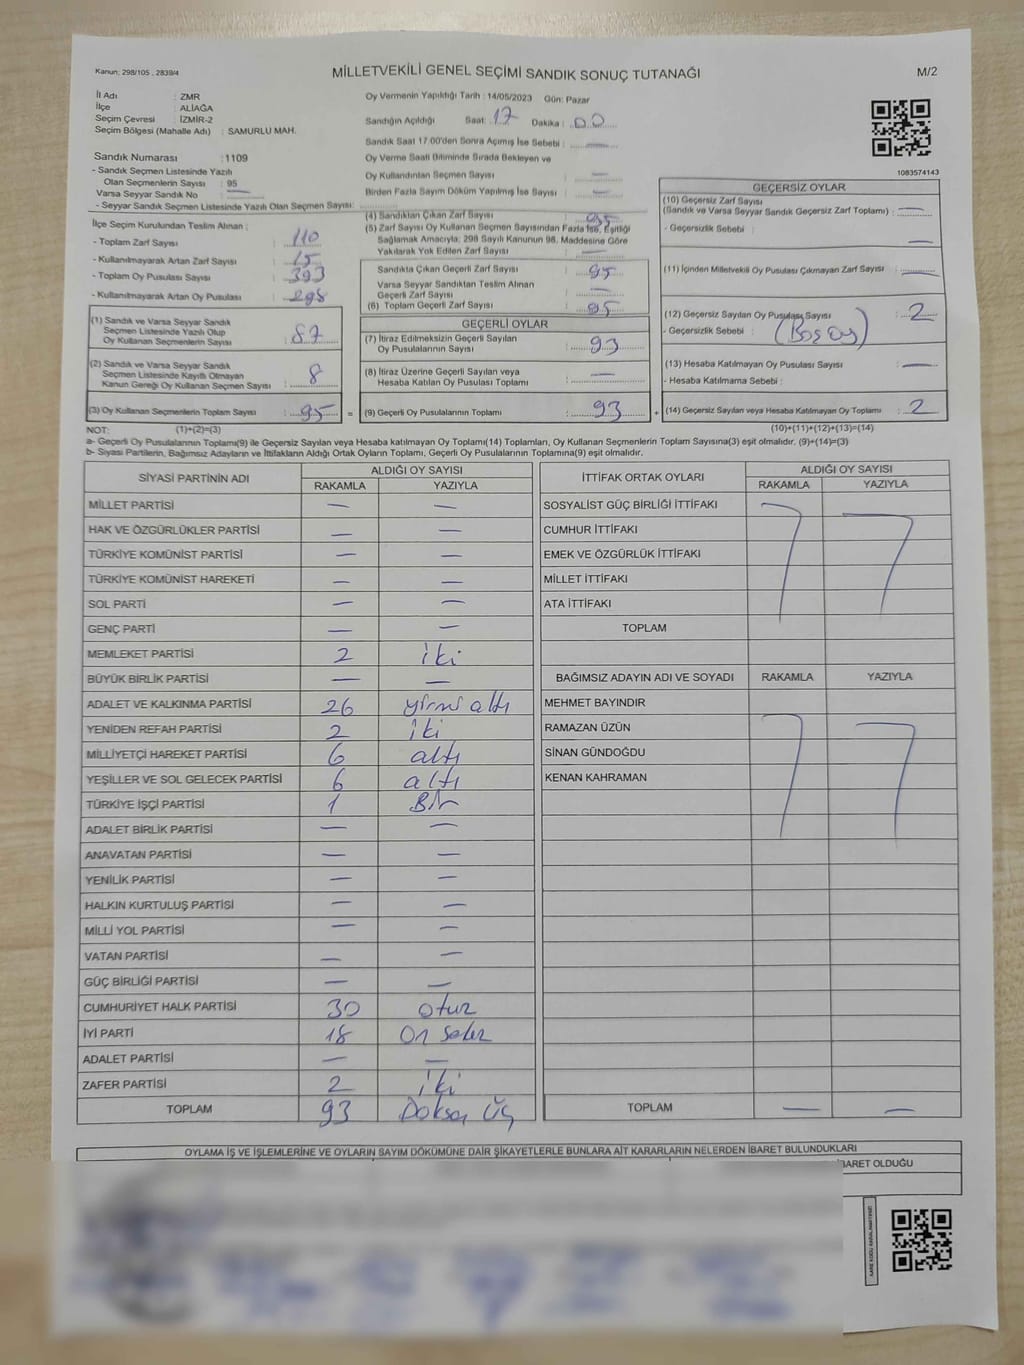 Kanun: 298/105 , 2839/4
MİLLETVEKİLİ GENEL SEÇİMİ SANDIK SONUÇ TUTANAĞI
M/2
İl Adı : ZMR
İlçe : ALİAĞA
Seçim Çevresi : İZMİR-2
Seçim Bölgesi (Mahalle Adı) : SAMURLU MAH.
Sandık Numarası : 1109
- Sandık Seçmen Listesinde Yazılı
Olan Seçmenlerin Sayısı : 95
Varsa Seyyar Sandık No —
- Seyyar Sandık Seçmen Listesinde Yazılı Olan Seçmen Sayısı:
Oy Vermenin Yapıldığı Tarih : 14/05/2023 Gün: Pazar
Sandığın Açıldığı Saat: 17 Dakika : 00
Sandık Saat 17.00'den Sonra Açılmış İse Sebebi : —
Oy Verme Saati Bitiminde Sırada Bekleyen ve
Oy Kullandırılan Seçmen Sayısı : —
Birden Fazla Sayım Döküm Yapılmış İse Sayısı : —
1083574143
İlçe Seçim Kurulundan Teslim Alınan :
- Toplam Zarf Sayısı : 110
- Kullanılmayarak Artan Zarf Sayısı : 15
- Toplam Oy Pusulası Sayısı : 393
- Kullanılmayarak Artan Oy Pusulası : 298
(1) Sandık ve Varsa Seyyar Sandık
Seçmen Listesinde Yazılı Olup
Oy Kullanan Seçmenlerin Sayısı : 87
(2) Sandık ve Varsa Seyyar Sandık
Seçmen Listesinde Kayıtlı Olmayan
Kanun Gereği Oy Kullanan Seçmen Sayısı : 8
(3) Oy Kullanan Seçmenlerin Toplam Sayısı : 95 =
(4) Sandıktan Çıkan Zarf Sayısı : 95
(5) Zarf Sayısı Oy Kullanan Seçmen Sayısından Fazla İse, Eşitliği
Sağlamak Amacıyla; 298 Sayılı Kanunun 98. Maddesine Göre
Yakılarak Yok Edilen Zarf Sayısı : —
Sandıkta Çıkan Geçerli Zarf Sayısı : 95
Varsa Seyyar Sandıktan Teslim Alınan
Geçerli Zarf Sayısı : —
(6) Toplam Geçerli Zarf Sayısı : 95
GEÇERLİ OYLAR
(7) İtiraz Edilmeksizin Geçerli Sayılan
Oy Pusulalarının Sayısı : 93
(8) İtiraz Üzerine Geçerli Sayılan veya
Hesaba Katılan Oy Pusulası Toplamı : —
(9) Geçerli Oy Pusulalarının Toplamı : 93 +
GEÇERSİZ OYLAR
(10) Geçersiz Zarf Sayısı
(Sandık ve Varsa Seyyar Sandık Geçersiz Zarf Toplamı) : —
- Geçersizlik Sebebi : —
(11) İçinden Milletvekili Oy Pusulası Çıkmayan Zarf Sayısı : —
(12) Geçersiz Sayılan Oy Pusulası Sayısı : 2
- Geçersizlik Sebebi : (Boş Oy)
(13) Hesaba Katılmayan Oy Pusulası Sayısı : —
- Hesaba Katılmama Sebebi :
(14) Geçersiz Sayılan veya Hesaba Katılmayan Oy Toplamı : 2
NOT: (1)+(2)=(3)
(10)+(11)+(12)+(13)=(14)
a- Geçerli Oy Pusulalarının Toplamı(9) ile Geçersiz Sayılan veya Hesaba katılmayan Oy Toplamı(14) Toplamları, Oy Kullanan Seçmenlerin Toplam Sayısına(3) eşit olmalıdır. (9)+(14)=(3)
b- Siyasi Partilerin, Bağımsız Adayların ve İttifakların Aldığı Ortak Oyların Toplamı, Geçerli Oy Pusulalarının Toplamına(9) eşit olmalıdır.
SİYASİ PARTİNİN ADI ALDIĞI OY SAYISI
RAKAMLA YAZIYLA
MİLLET PARTİSİ — —
HAK VE ÖZGÜRLÜKLER PARTİSİ — —
TÜRKİYE KOMÜNİST PARTİSİ — —
TÜRKİYE KOMÜNİST HAREKETİ — —
SOL PARTİ — —
GENÇ PARTİ — —
MEMLEKET PARTİSİ 2 iki
BÜYÜK BİRLİK PARTİSİ — —
ADALET VE KALKINMA PARTİSİ 26 yirmi altı
YENİDEN REFAH PARTİSİ 2 iki
MİLLİYETÇİ HAREKET PARTİSİ 6 altı
YEŞİLLER VE SOL GELECEK PARTİSİ 6 altı
TÜRKİYE İŞÇİ PARTİSİ 1 Bir
ADALET BİRLİK PARTİSİ — —
ANAVATAN PARTİSİ — —
YENİLİK PARTİSİ — —
HALKIN KURTULUŞ PARTİSİ — —
MİLLİ YOL PARTİSİ — —
VATAN PARTİSİ — —
GÜÇ BİRLİĞİ PARTİSİ — —
CUMHURİYET HALK PARTİSİ 30 otuz
İYİ PARTİ 18 On Sekiz
ADALET PARTİSİ — —
ZAFER PARTİSİ 2 iki
TOPLAM 93 Doksan Üç
İTTİFAK ORTAK OYLARI ALDIĞI OY SAYISI
RAKAMLA YAZIYLA
SOSYALİST GÜÇ BİRLİĞİ İTTİFAKI
CUMHUR İTTİFAKI
EMEK VE ÖZGÜRLÜK İTTİFAKI
MİLLET İTTİFAKI
ATA İTTİFAKI
TOPLAM
BAĞIMSIZ ADAYIN ADI VE SOYADI RAKAMLA YAZIYLA
MEHMET BAYINDIR
RAMAZAN ÜZÜN
SİNAN GÜNDOĞDU
KENAN KAHRAMAN
TOPLAM — —
OYLAMA İŞ VE İŞLEMLERİNE VE OYLARIN SAYIM DÖKÜMÜNE DAİR ŞİKAYETLERLE BUNLARA AİT KARARLARIN NELERDEN İBARET BULUNDUKLARI
İBARET OLDUĞU